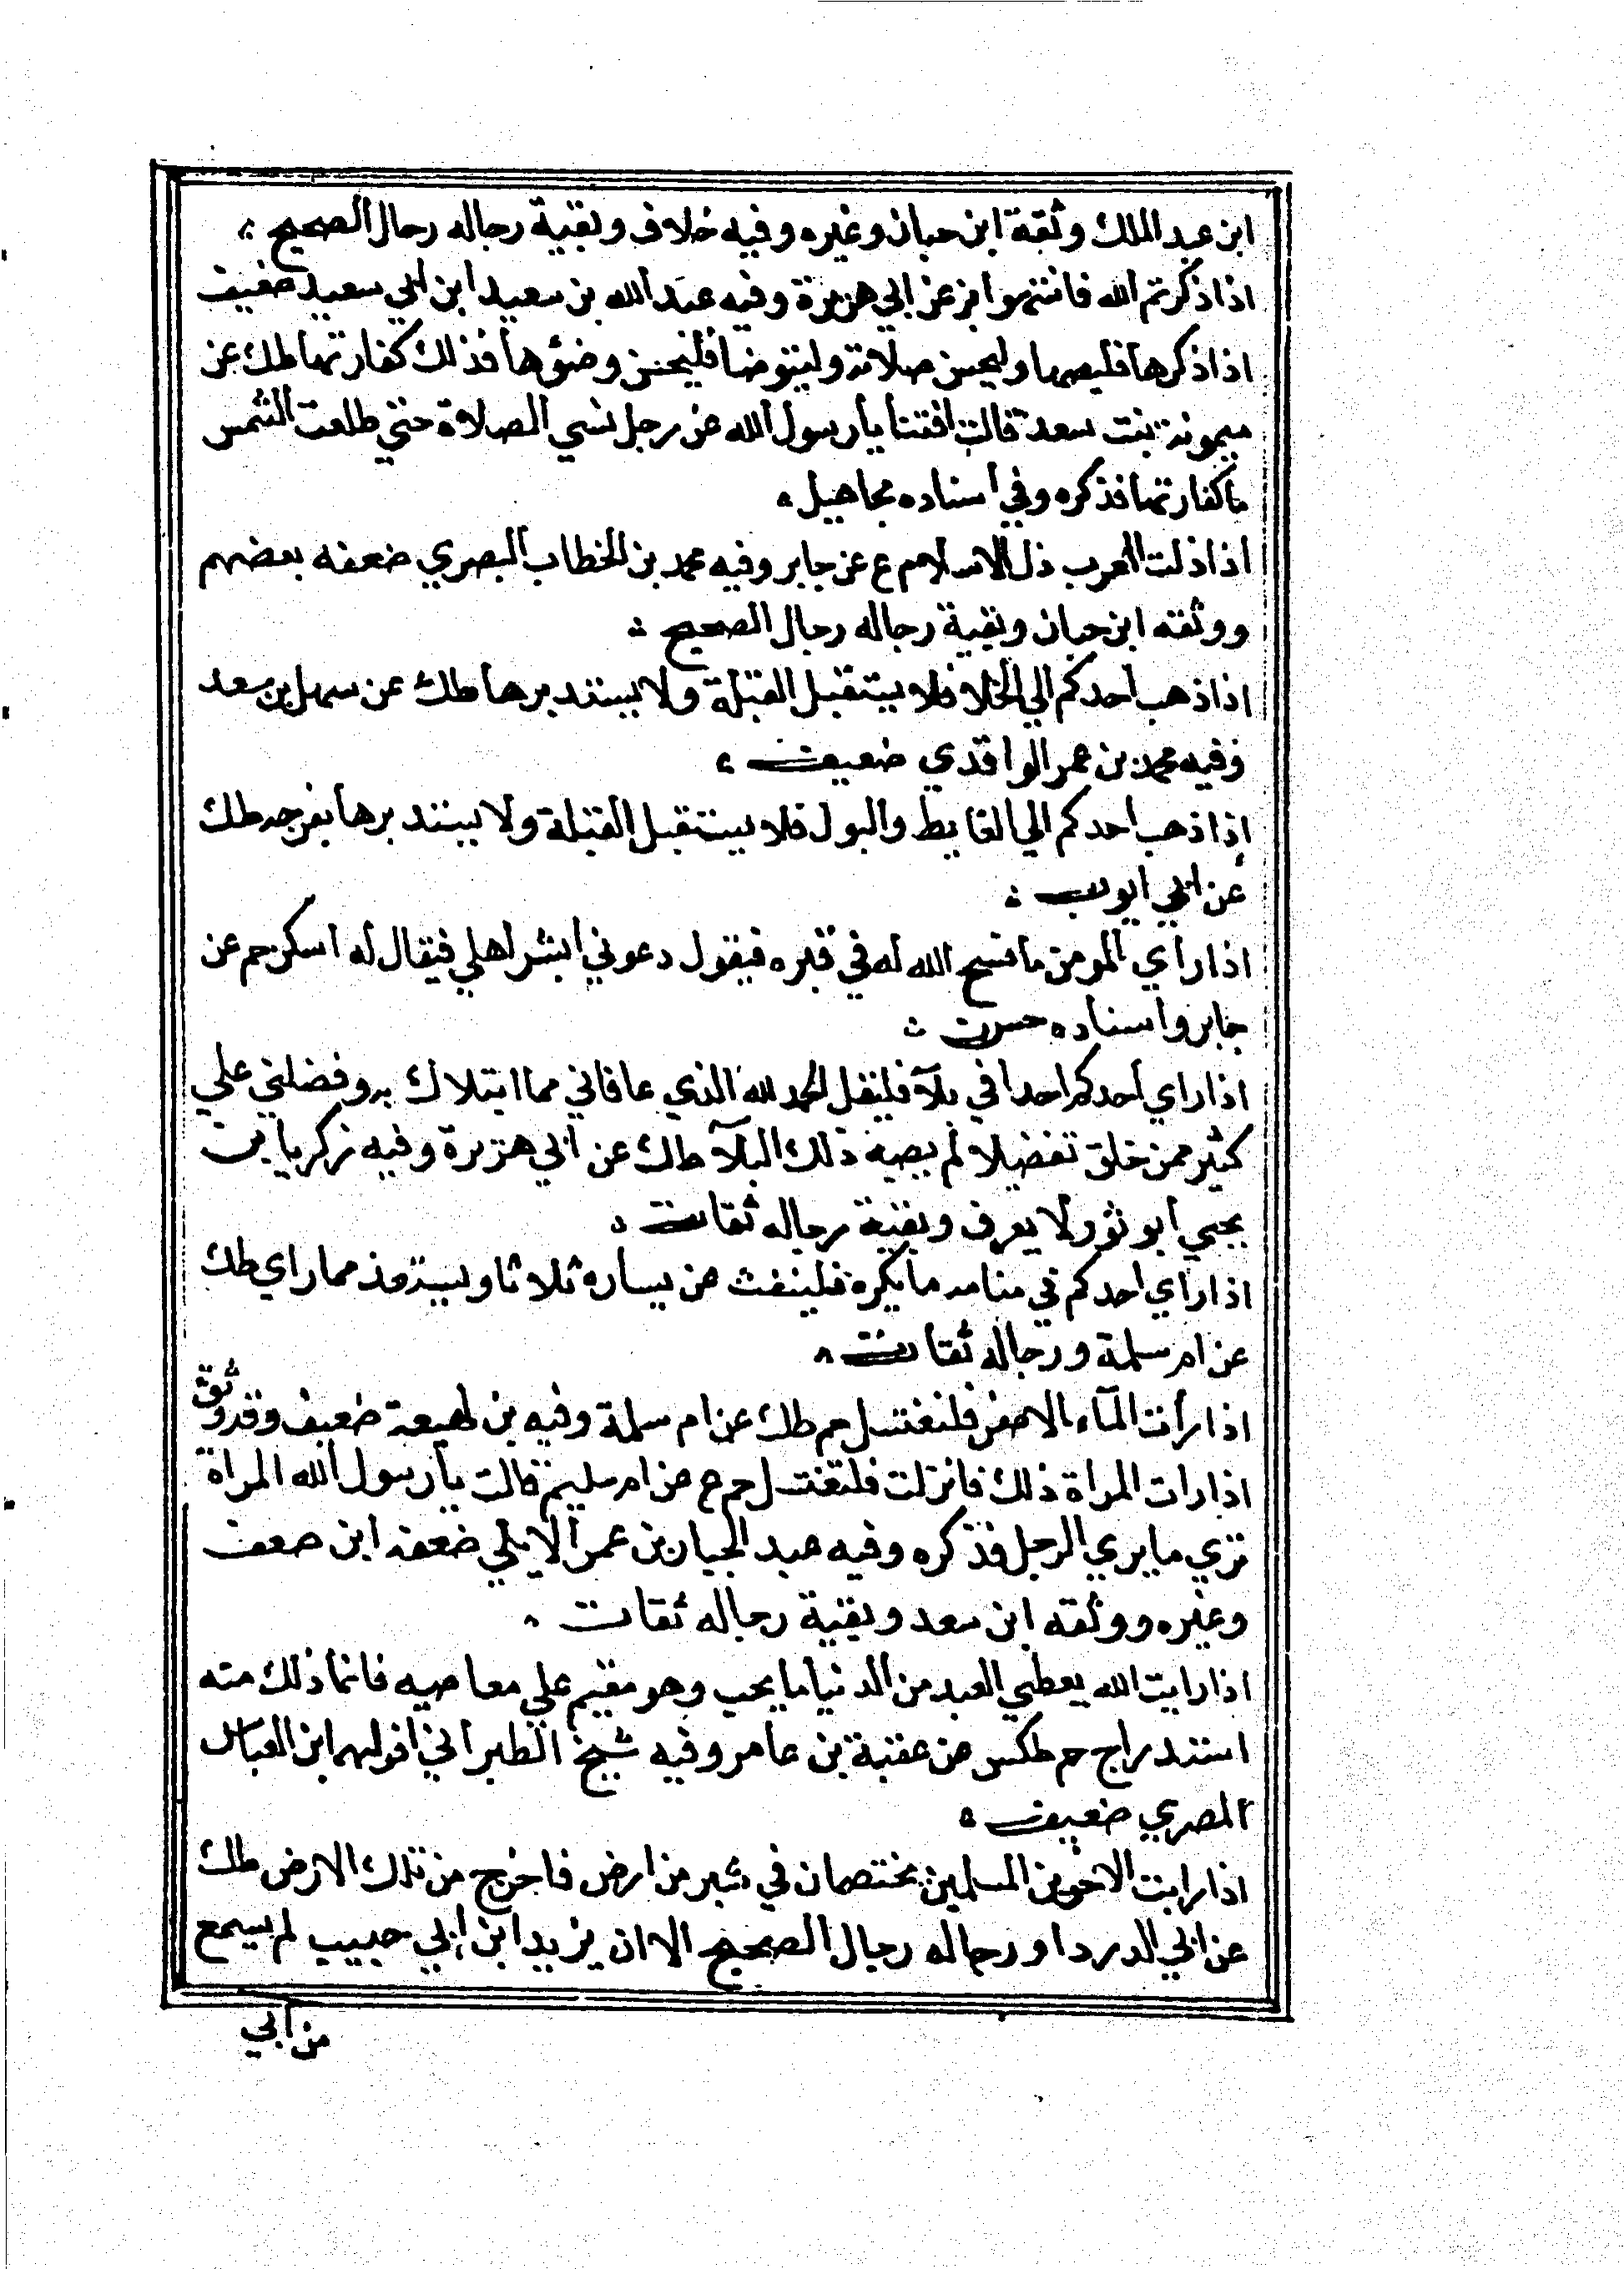 ابن عبد الملك وثقة ابن حبان وغيره وفيه خلاف وبقية رجاله رجال الصحيح
اذا ذكرتم الله فانتهوا بز عن ابي هريرة وفيه عبد الله بن سعيد ابن ابي سعيد ضعيف
اذا ذكرها فليصها وليحسن صلاته وليتوضا فليحسن وضؤها فذلك كفارتها طك عن
ميمونة بنت سعد قالت افتنا يا رسول الله عن رجل نسي الصلاة حتي طلعت الشمس
ما كفارتها فذكره وفي اسناده مجاهيل
اذا ذلت العرب ذل الاسلام ع عن جابر وفيه محمد بن الخطاب البصري ضعفه بعضهم
ووثقه ابن حبان وبقية رجاله رجال الصحيح
اذا ذهب احدكم الي الخلا فلا يستقبل القبلة ولا يستدبرها طك عن سهل بن سعد
وفيه محمد بن عمر الواقدي ضعيف
اذا ذهب احدكم الي الغايط والبول فلا يستقبل القبلة ولا يستدبرها بفرجه طك
عن ابي ايوب
اذا راي المومن ما فسح الله له في قبره فيقول دعوني ابشر اهلي فيقال له اسكن حم عن
جابر واسناده حسن
اذا راي احدكم احدا في بلآ فليقل الحمد لله الذي عافاني مما ابتلاك به وفضلني علي
كثير ممن خلق تفضيلا لم يصبه ذلك البلآ طك عن ابي هريرة وفيه زكريا بن
يحيي ابو ثور لا يعرف وبقية رجاله ثقات
اذا راي احدكم في منامه ما يكره فلينفث عن يساره ثلاثا وليستعذ مما راي طك
عن ام سلمة ورجاله ثقات
اذا رأت المآء الاصفر فلتغتسل حم طك عن ام سلمة وفيه بن لهيعة ضعيف وقد وثق
اذا رات المراة ذلك فانزلت فلتغتسل حم ع عن ام سليم قالت يا رسول الله المراة
تري ما يري الرجل فذكره وفيه عبد الجبار بن عمر الايلي ضعفه ابن ضعف
وغيره ووثقه ابن سعد وبقية رجاله ثقات
اذا رايت الله يعطي العبد من الدنيا ما يحب وهو مقيم علي معاصيه فانما ذلك منه
استدراج حم طكس عن عقبة بن عامر وفيه شيخ الطبراني ابن العباس
المصري ضعيف
اذا رايت الاخوين المسلمين يختصمان في شبر من ارض فاخرج من تلك الارض طك
عن ابي الدردا ورجاله رجال الصحيح الا ان يزيد ابن ابي حبيب لم يسمع
من ابي